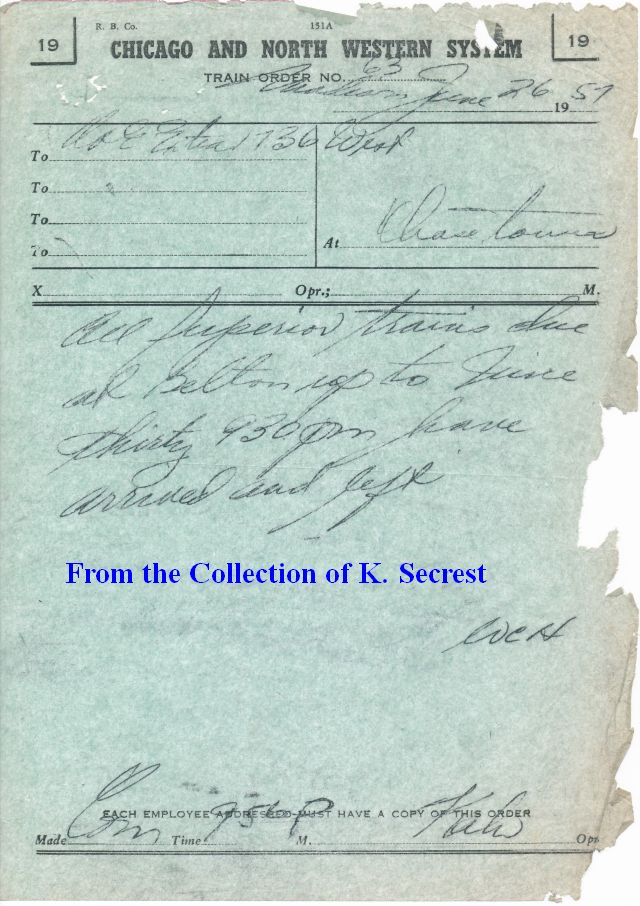 R. B. Co. 151A
19 19
CHICAGO AND NORTH WESTERN SYSTEM
TRAIN ORDER NO. 63
Madison June 26 19 57
To C & E 736 West
To
To
To At
X Opr.; M.
All Superior trains due
at Belton up to nine
thirty 930 pm have
arrived and left
From the Collection of K. Secrest
WCH
EACH EMPLOYEE ADDRESSED MUST HAVE A COPY OF THIS ORDER
Made Com Time 956 P M. Opr